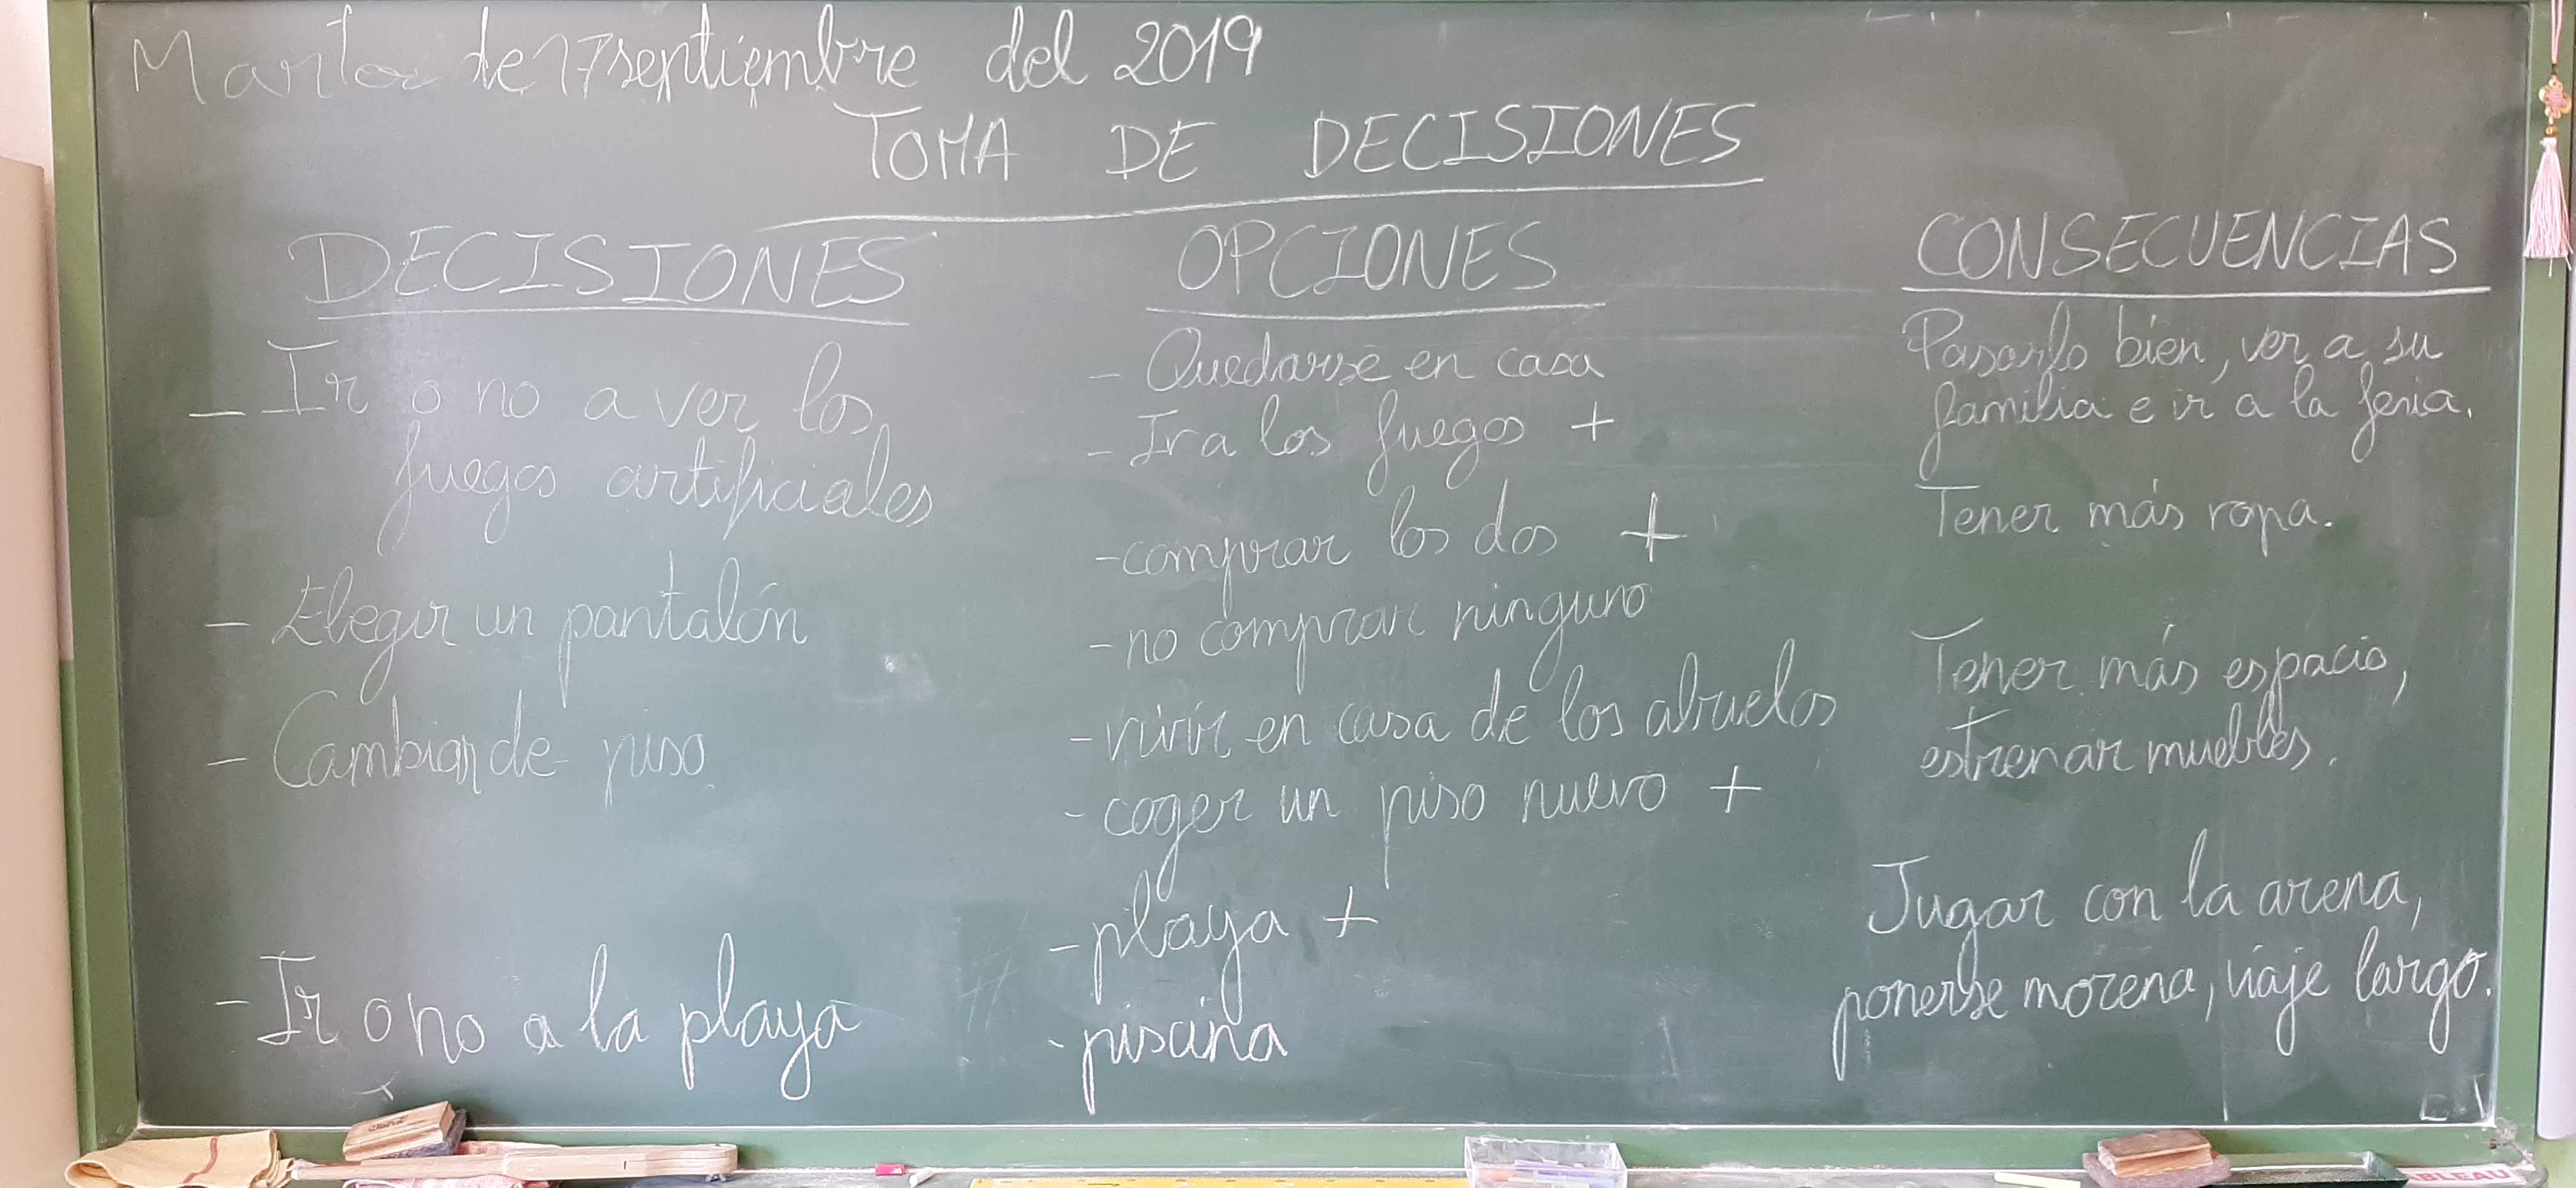 Martes de 17 septiembre del 2019
TOMA DE DECISIONES
DECISIONES
- Ir o no a ver los
fuegos artificiales
- Elegir un pantalón
- Cambiar de piso
- Ir o no a la playa
OPCIONES
- Quedarse en casa
- Ir a los fuegos +
- comprar los dos +
- no comprar ninguno
- vivir en casa de los abuelos
- coger un piso nuevo +
- playa +
- piscina
CONSECUENCIAS
Pasarlo bien, ver a su
familia e ir a la feria.
Tener más ropa.
Tener más espacio,
estrenar muebles.
Jugar con la arena,
ponerse morena, viaje largo.